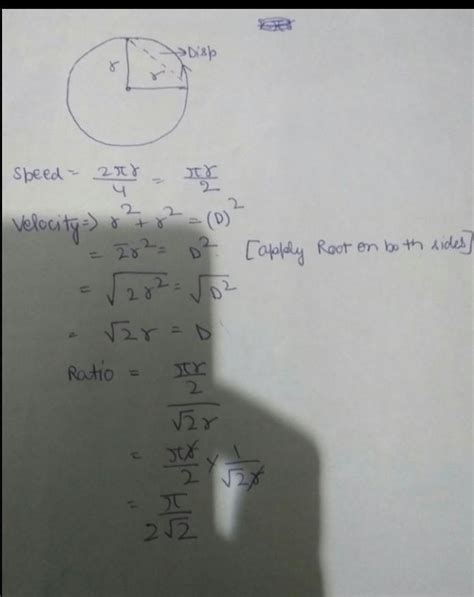 →Disp
r
r
Speed = 2πr/4 = πr/2
Velocity⇒ r² + r² = (D)²
= 2r² = D² [apply Root on both sides]
= √2r² = √D²
= √2r = D
Ratio = πr/2 / √2r
= πr/2 × 1/√2r
= π/2√2